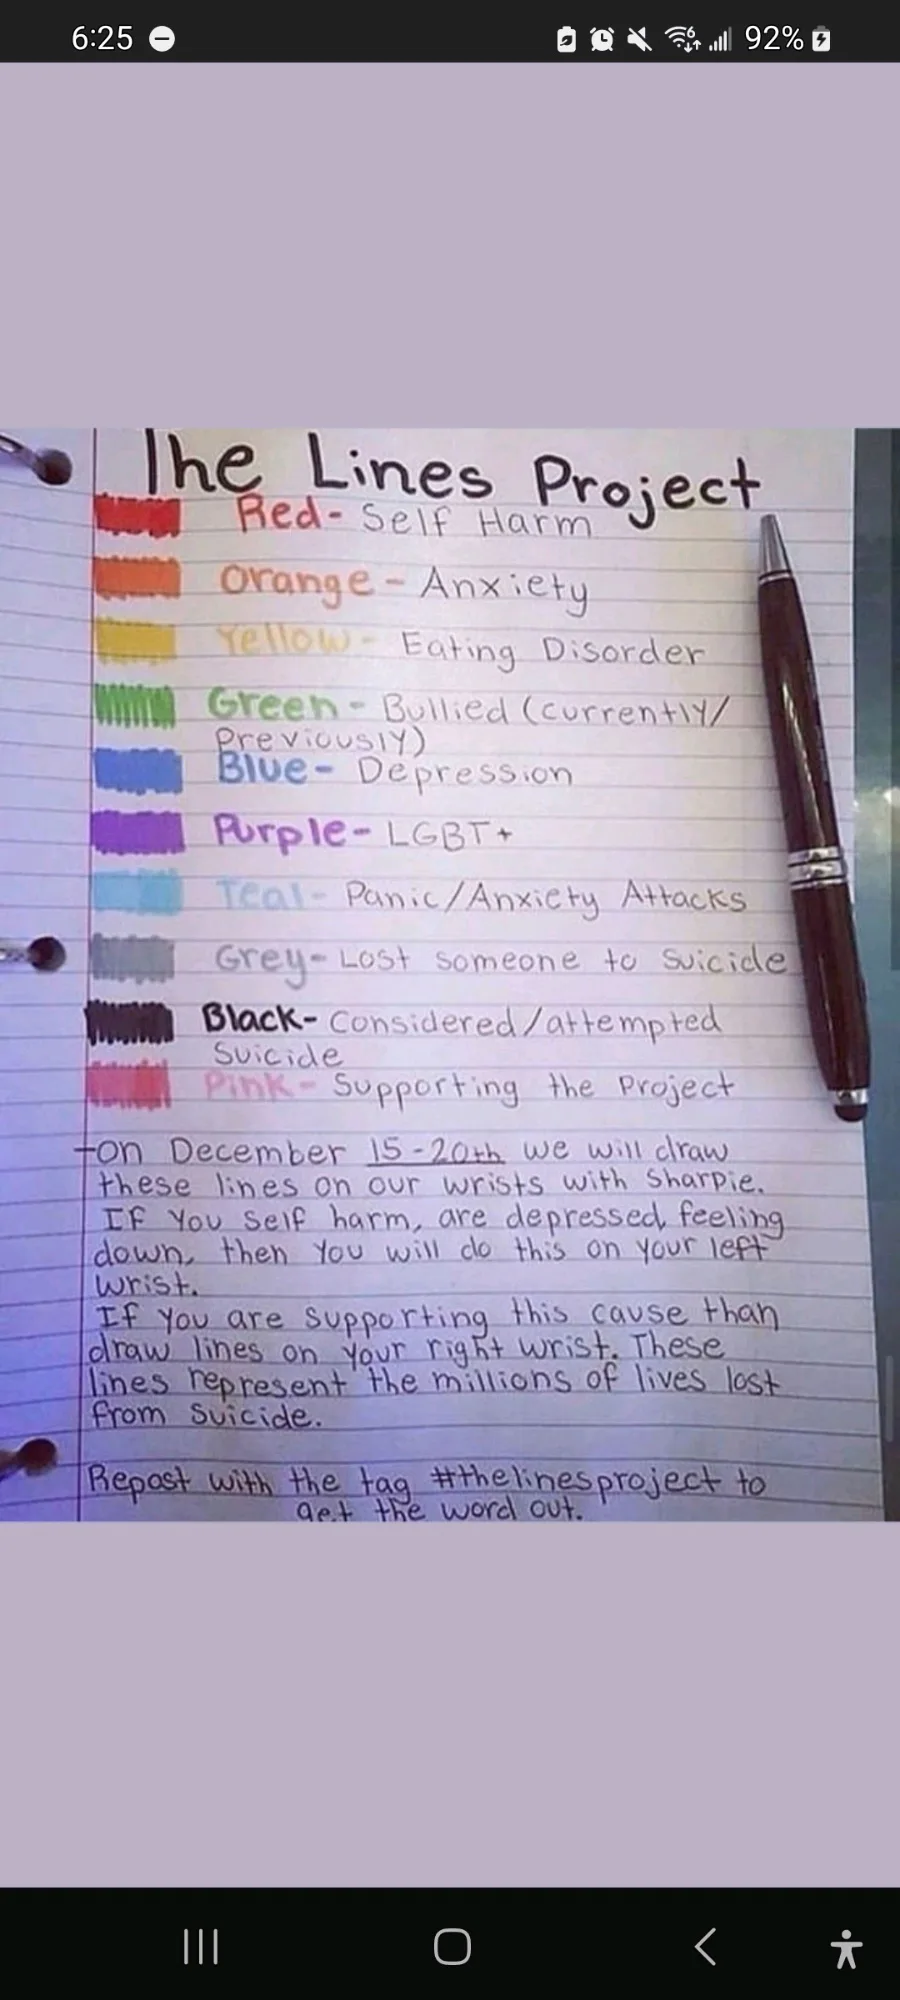 6:25
92%
The Lines Project
Red- Self Harm
Orange- Anxiety
Yellow- Eating Disorder
Green- Bullied (currently/
Previously)
Blue- Depression
Purple- LGBT+
Teal- Panic/Anxiety Attacks
Grey- Lost someone to suicide
Black- Considered/attempted
Suicide
Pink- Supporting the Project
-on December 15-20th we will draw
these lines on our wrists with Sharpie.
If you self harm, are depressed, feeling
down, then you will do this on your left
wrist.
If you are supporting this cause than
draw lines on your right wrist. These
lines represent the millions of lives lost
from suicide.
Repost with the tag #thelinesproject to
get the word out.